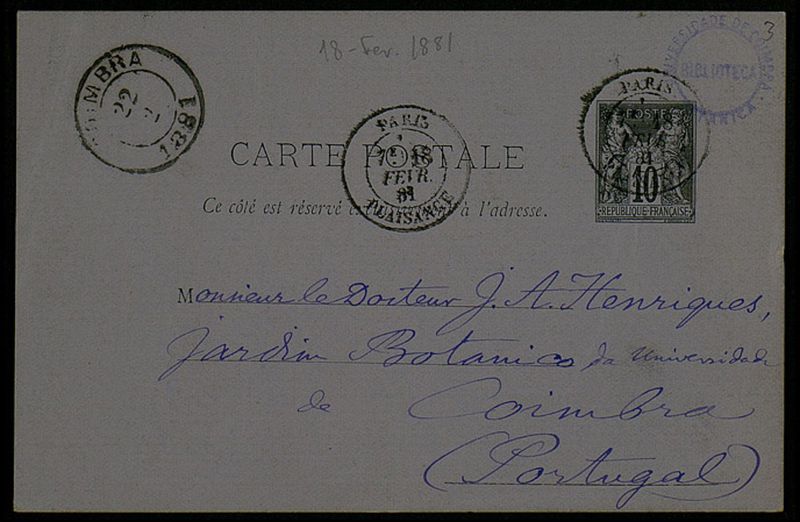 18-Fev. 1881
3
COIMBRA
22
1881
UNIVERSIDADE DE COIMBRA
BIBLIOTECA
BOTANICA
PARIS
18
FEVR.
81
PLAISANCE
PARIS
FEVR.
81
POSTES
10
REPUBLIQUE FRANÇAISE
CARTE POSTALE
Ce côté est réservé exclusivement à l'adresse.
Monsieur le Docteur J. A. Henriques,
Jardim Botanico da Universidade
de Coimbra
(Portugal)